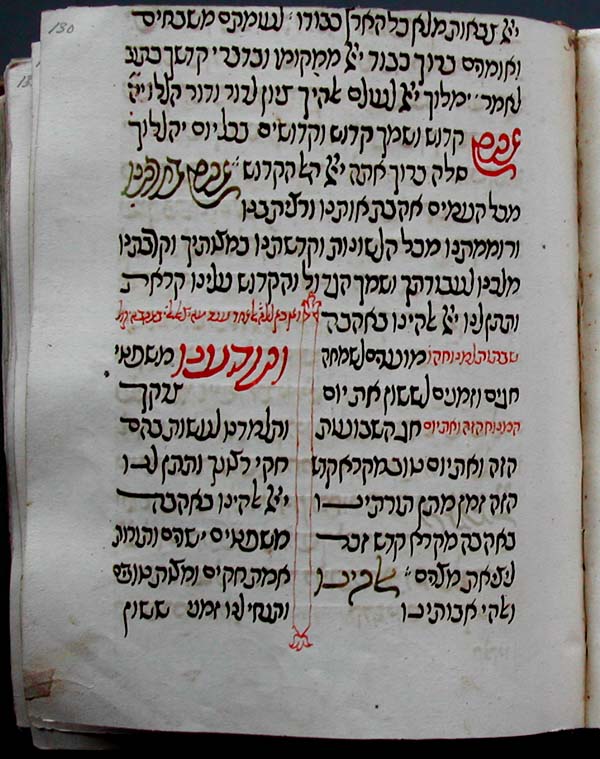 130
ייי צבאות מלא כל הארץ כבודו לעומתם משבחים
ואומרים ברוך כבוד ייי ממקומו ובדברי קדשך כתוב
לאמר ימלוך ייי לעולם אלהיך ציון לדור ודור הללויה
אתה קדוש ושמך קדוש וקדושים בכל יום יהללוך
סלה ברוך אתה ייי האל הקדוש אתה בחרתנו
מכל העמים אהבת אותנו ורצית בנו
ורוממתנו מכל הלשונות וקדשתנו במצותיך וקרבתנו
מלכנו לעבודתך ושמך הגדול והקדוש עלינו קראת
ותתן לנו ייי אלהינו באהבה
שבתות למנוחה ו מועדים לשמחה
חגים וזמנים לששון את יום
המנוחה הזה ואת יום חג השבועות
הזה ואת יום טוב מקרא קדש
הזה זמן מתן תורתינו
באהבה מקרא קדש זכר
ליציאת מצרים אלהינו
ואלהי אבותינו
ותודיענו משפטי
צדקך
ותלמדנו לעשות בהם
חקי רצונך ותתן לנו
ייי אלהינו באהבה
משפטים ישרים ותורות
אמת חקים ומצות טובים
ותנחילנו זמני ששון